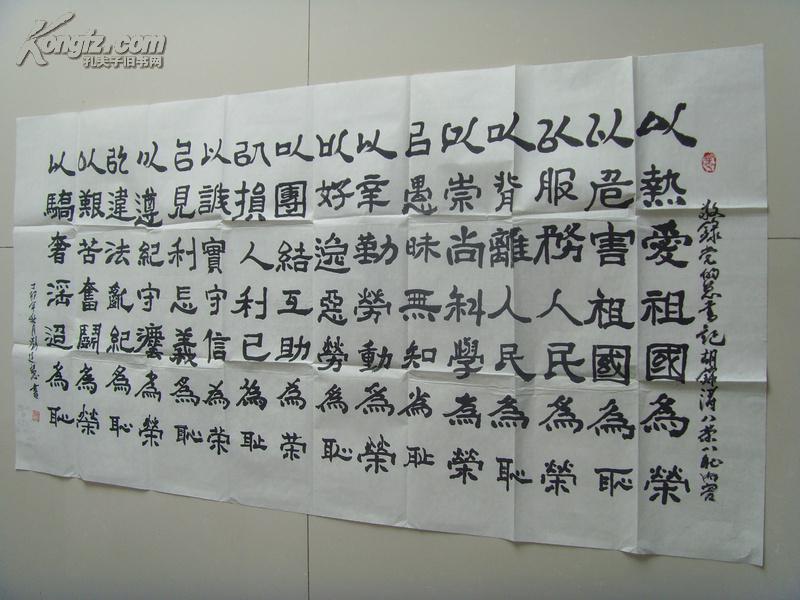 Kongfz.com
孔夫子旧书网
敬録党的总書記胡錦涛八荣八耻内容
以熱愛祖國為榮
以危害祖國為恥
以服務人民為榮
以背離人民為恥
以崇尚科學為榮
以愚昧無知為耻
以辛勤勞動為榮
以好逸惡勞為恥
以團結互助為荣
以損人利己為耻
以誠實守信為荣
以見利忘義為恥
以遵紀守灋為榮
以違法亂紀為恥
以艱苦奮鬭為榮
以驕奢淫逸為恥